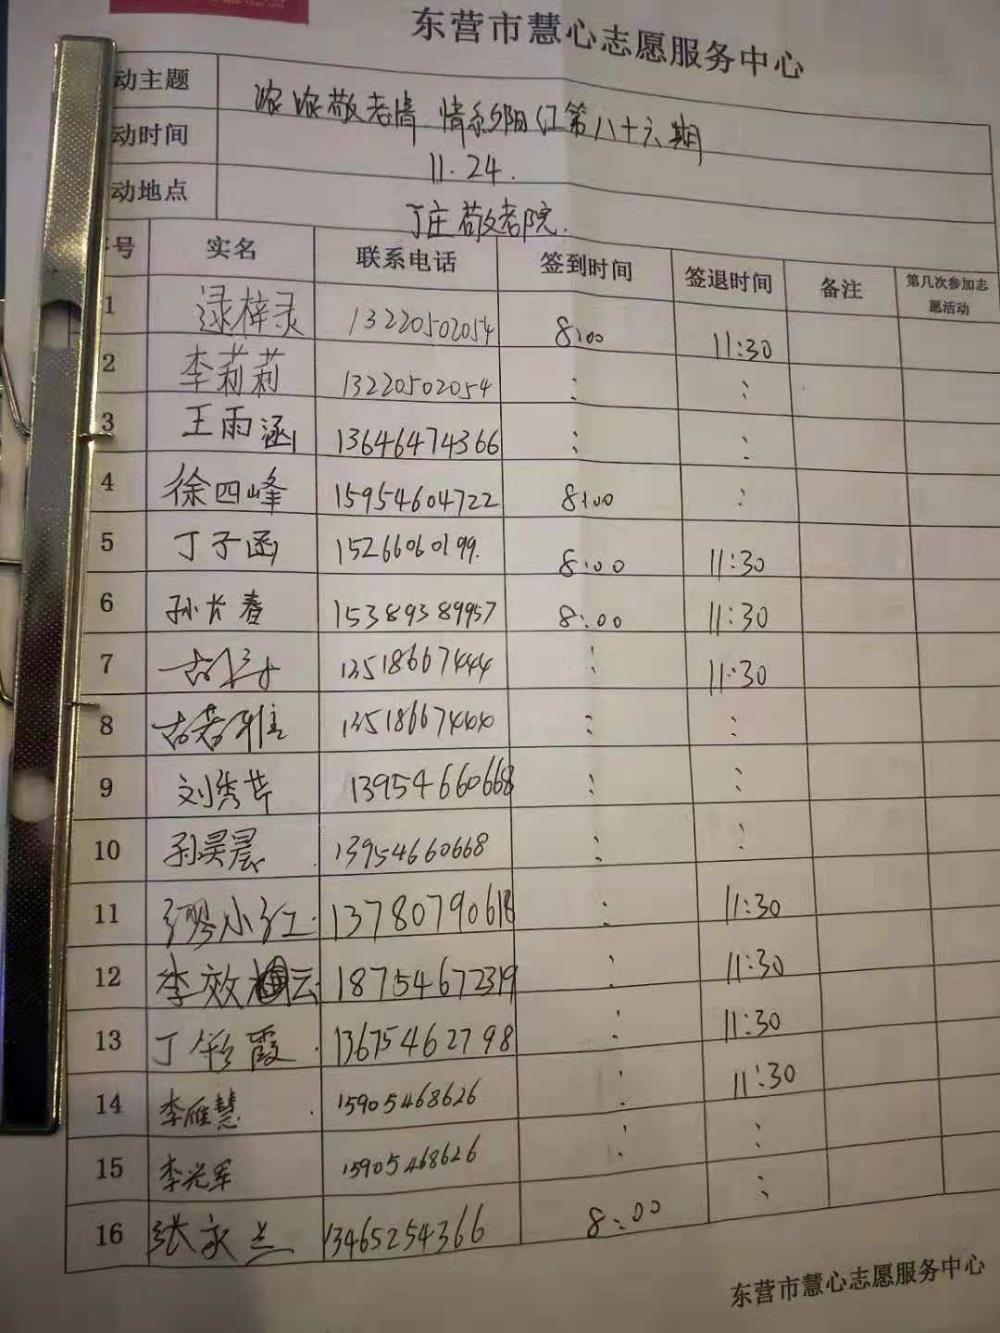 东营市慧心志愿服务中心
动主题 浓浓敬老情 情系夕阳红第八十六期
动时间 11.24.
动地点 丁庄敬老院.
号 实名 联系电话 签到时间 签退时间 备注 第几次参加志愿活动
1 梓灵 13220502054 8:00 11:30
2 李莉莉 13220502054 : :
3 王雨涵 13646474366 : :
4 徐四峰 15954604722 8:00 :
5 丁子函 15266060199. 8:00 11:30
6 孙长春 15389389957 8:00 11:30
7 13518667444 : 11:30
8 13518667444 : :
9 刘秀芹 13954660668 : :
10 孙昊晨 13954660668 : :
11 缪小红 : 11:30
12 李效云 18754672319 : 11:30
13 丁彩霞 13675462798 : 11:30
14 李雁慧 15905468626 : 11:30
15 李光军 15905468626 : :
16 张永兰 13465254366 8:00 :
东营市慧心志愿服务中心